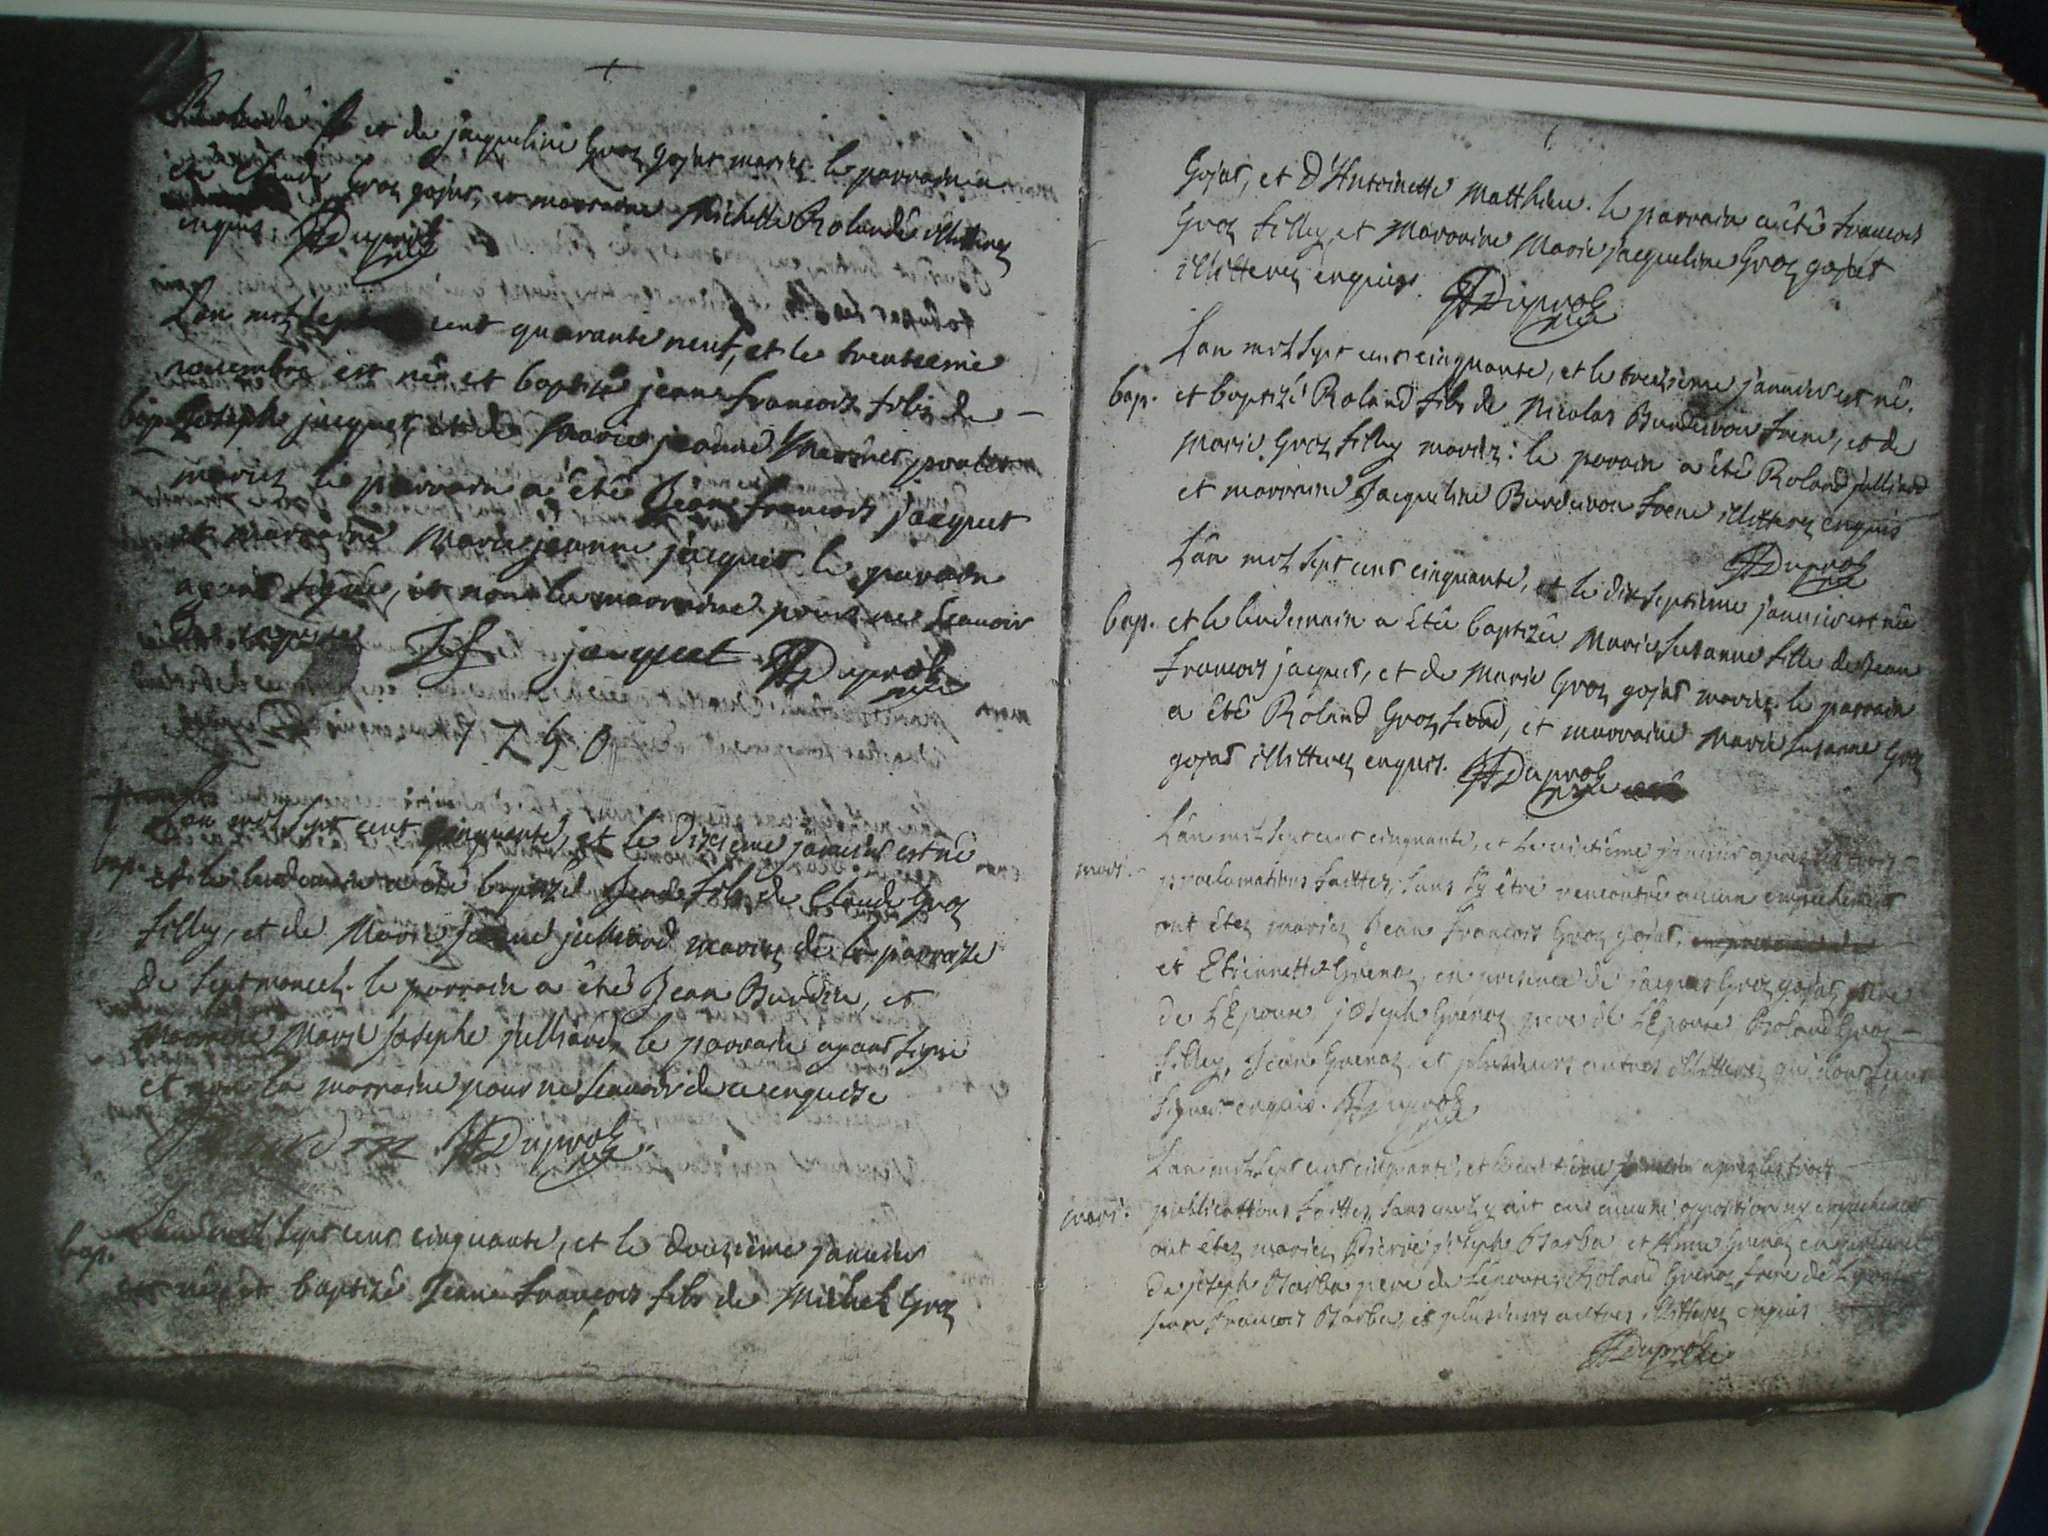 et de jacqueline Groz gojat mariez le parrain a
été Claude Groz gojat, et marraine Michelle Rolandé illitterez
enquis. Duproz
L'an mil sept cent quarante neuf, et le trentieme
novembre est né et baptizé jean francois fils de
bap. Joseph jacquet, et de Marie jeanne
mariez le parrain a été Jean francois jacquet
et marraine Marie jeanne jacquet le parrain
ayant signé, et non la marraine pour ne scavoir
de ce enquise
J f jacquet Duproz
1750
L'an mil sept cent cinquante, et le dixieme janvier est né
bap. et le lendemain a été baptizé fils de Claude Groz
filley, et de Marie julliard mariez de la parroisse
de Septmoncel. le parrain a été Jean Burdin, et
Marraine Marie Josephe julliard, le parrain ayant signé
et non la marraine pour ne scavoir de ce enquise
J Burdin Duproz
L'an mil sept cent cinquante, et le douzième janvier
bap. est né et baptizé Jean françois fils de Michel Groz
Gojat, et d'Antoinette Matthieu. le parrain a été francois
Groz filley, et Marraine Marie jacqueline Groz gojat
illitterez enquis. Duproz
L'an mil sept cent cinquante, et le treizieme janvier est né
bap. et baptizé Roland fils de Nicolas et de
Marie Groz filley mariez: le parain a été Roland julliard
et marraine Jacqueline illitterez enquis
Duproz
L'an mil sept cent cinquante, et le dix septieme janvier est née
bap. et le lendemain a été baptizée Marie Susanne fille de Jean
francois jacquet, et de Marie Groz gojat mariez. le parrain
a été Roland Groz et marraine Marie Susanne Groz
gojat illitterez enquis. Duproz
L'an mil sept cent cinquante, et le janvier apres les trois
mari. proclamations faittes, sans s'y être rencontré aucun empechement
ont étez mariez Jean François Groz gojat,
et Etiennette Grenoz, en presence de jacques Groz gojat pere
de L'Epoux joseph Grenoz pere de L'Epouse Roland Groz
filley, Jean Grenoz et plusieurs autres illitterez
signer enquis. Duproz
L'an mil sept cent cinquante, et le janvier apres les trois
mari. publications faittes, sans qu'il y ait eu aucune opposition ny empechement
ont étez mariez Pierre joseph Barba et Anne Grenoz en presence
de joseph Barba pere de L'epoux, Roland Grenoz frere de L'epouse
jean francois Barba, et plusieurs autres illitterez enquis
Duproz